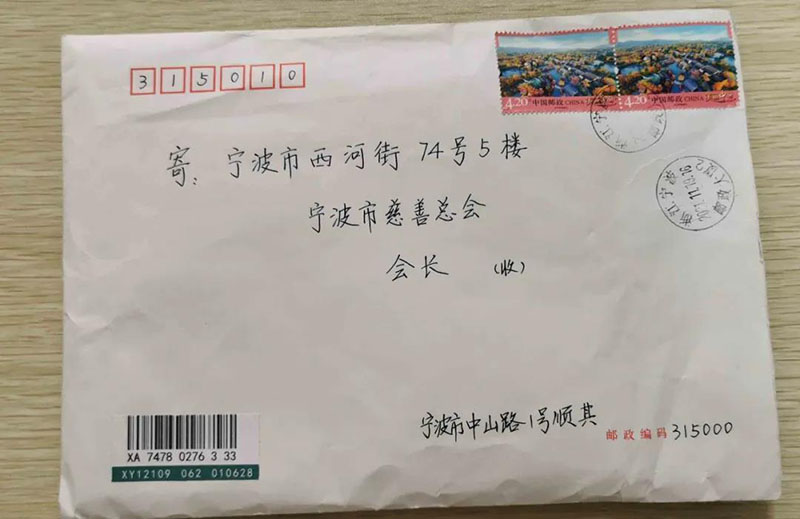 315010
4.20 中国邮政 CHINA
4.20 中国邮政 CHINA
寄：宁波市西河街74号5楼
宁波市慈善总会
会长 (收)
浙江宁波
2021.11.29.16
宁波市中山路1号顺其
邮政编码 315000
XA 7478 0276 3 33
XY12109 062 010628